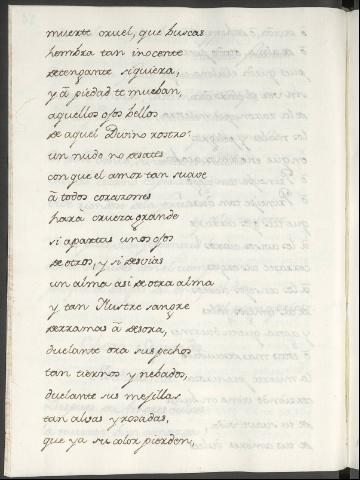 muerte cruel, que buscas
hembra tan inocente
detengante siquiera,
y â piedad te mueban,
aquellos ojos bellos
de aquel Divino rostro:
un nudo no desates
con que el amor tan suave
â todos corazones
hara crueza grande
si apartas unos ojos
de otros, y si desvias
un alma asi de otra alma
y tan Ilustre sangre
derramas â desora,
duelante ora sus pechos
tan tiernos y nebados,
duelante sus mejillas
tan albas y rosadas,
que ya su color pierden,